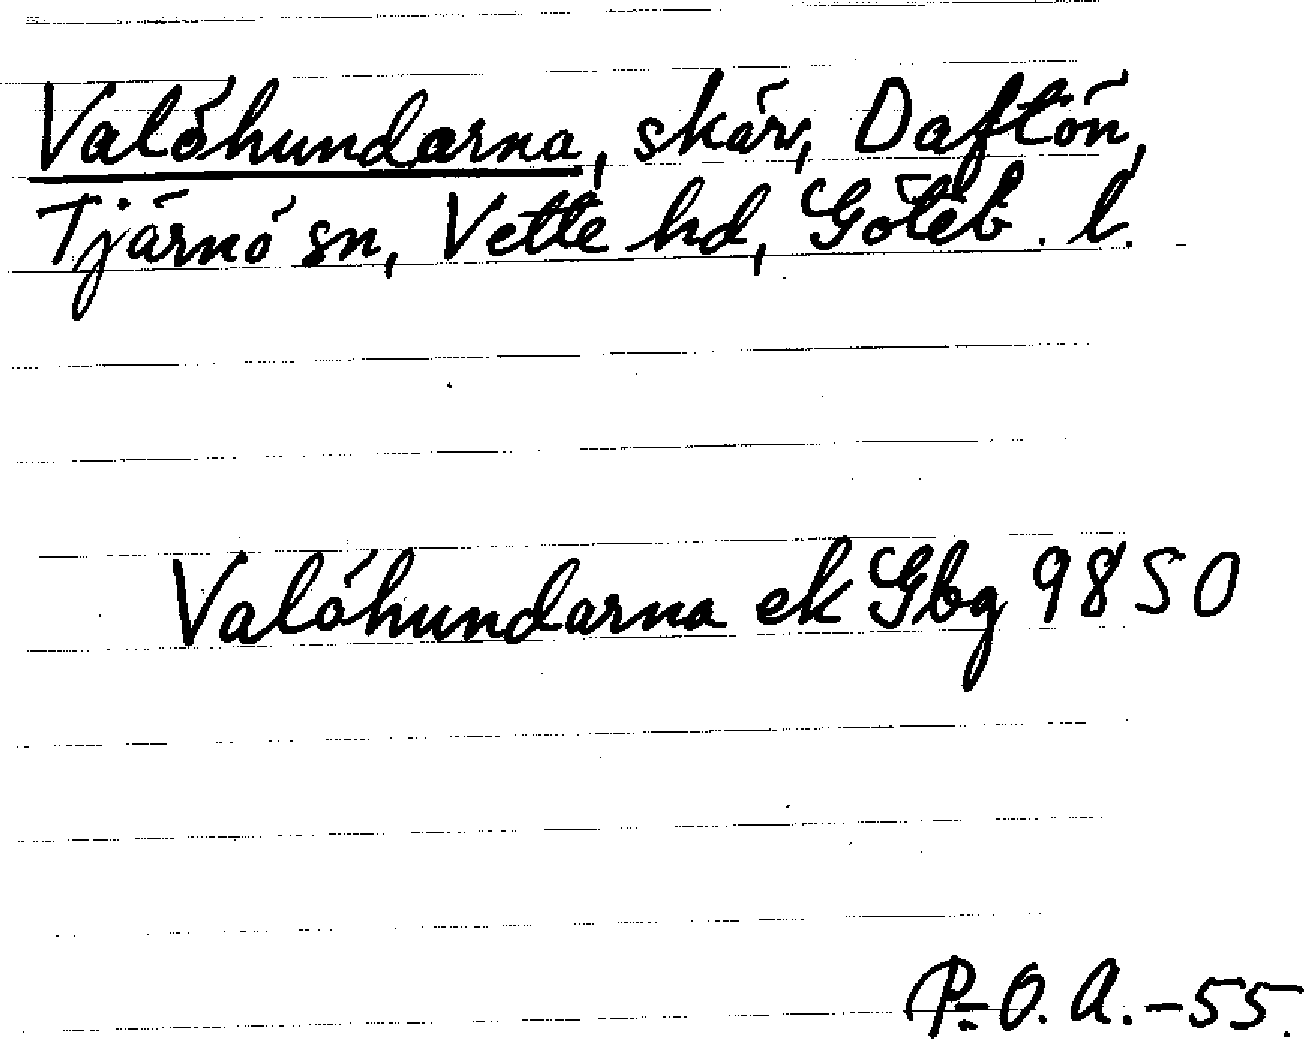 Valöhundarna, skär, Daftön,
Tjärnö sn, Vette hd, Göteb. l.
Valöhundarna ek Gbg 9850
P.-O. A. -55.